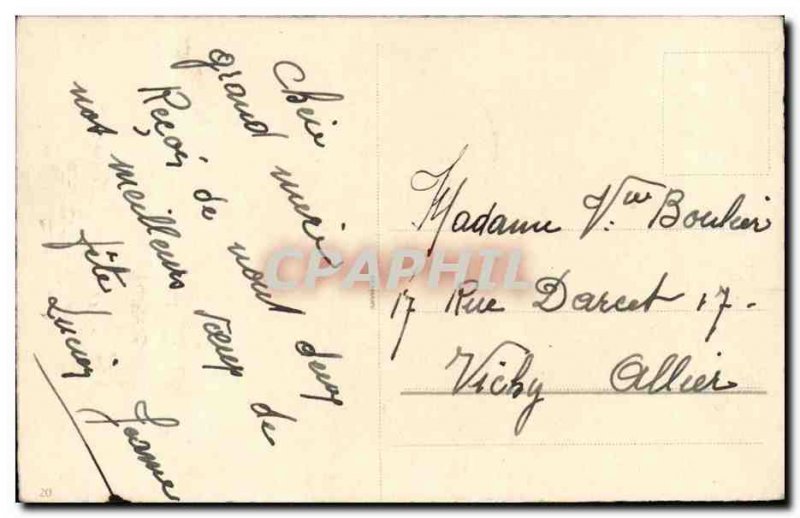 Chère
grand mere
Reçoi de nout deux
not meilleurs vœux de
fête
Lucien
Madame Vve Boulier
17 Rue Darcet 17.
Vichy Allier
CPAPHIL
20